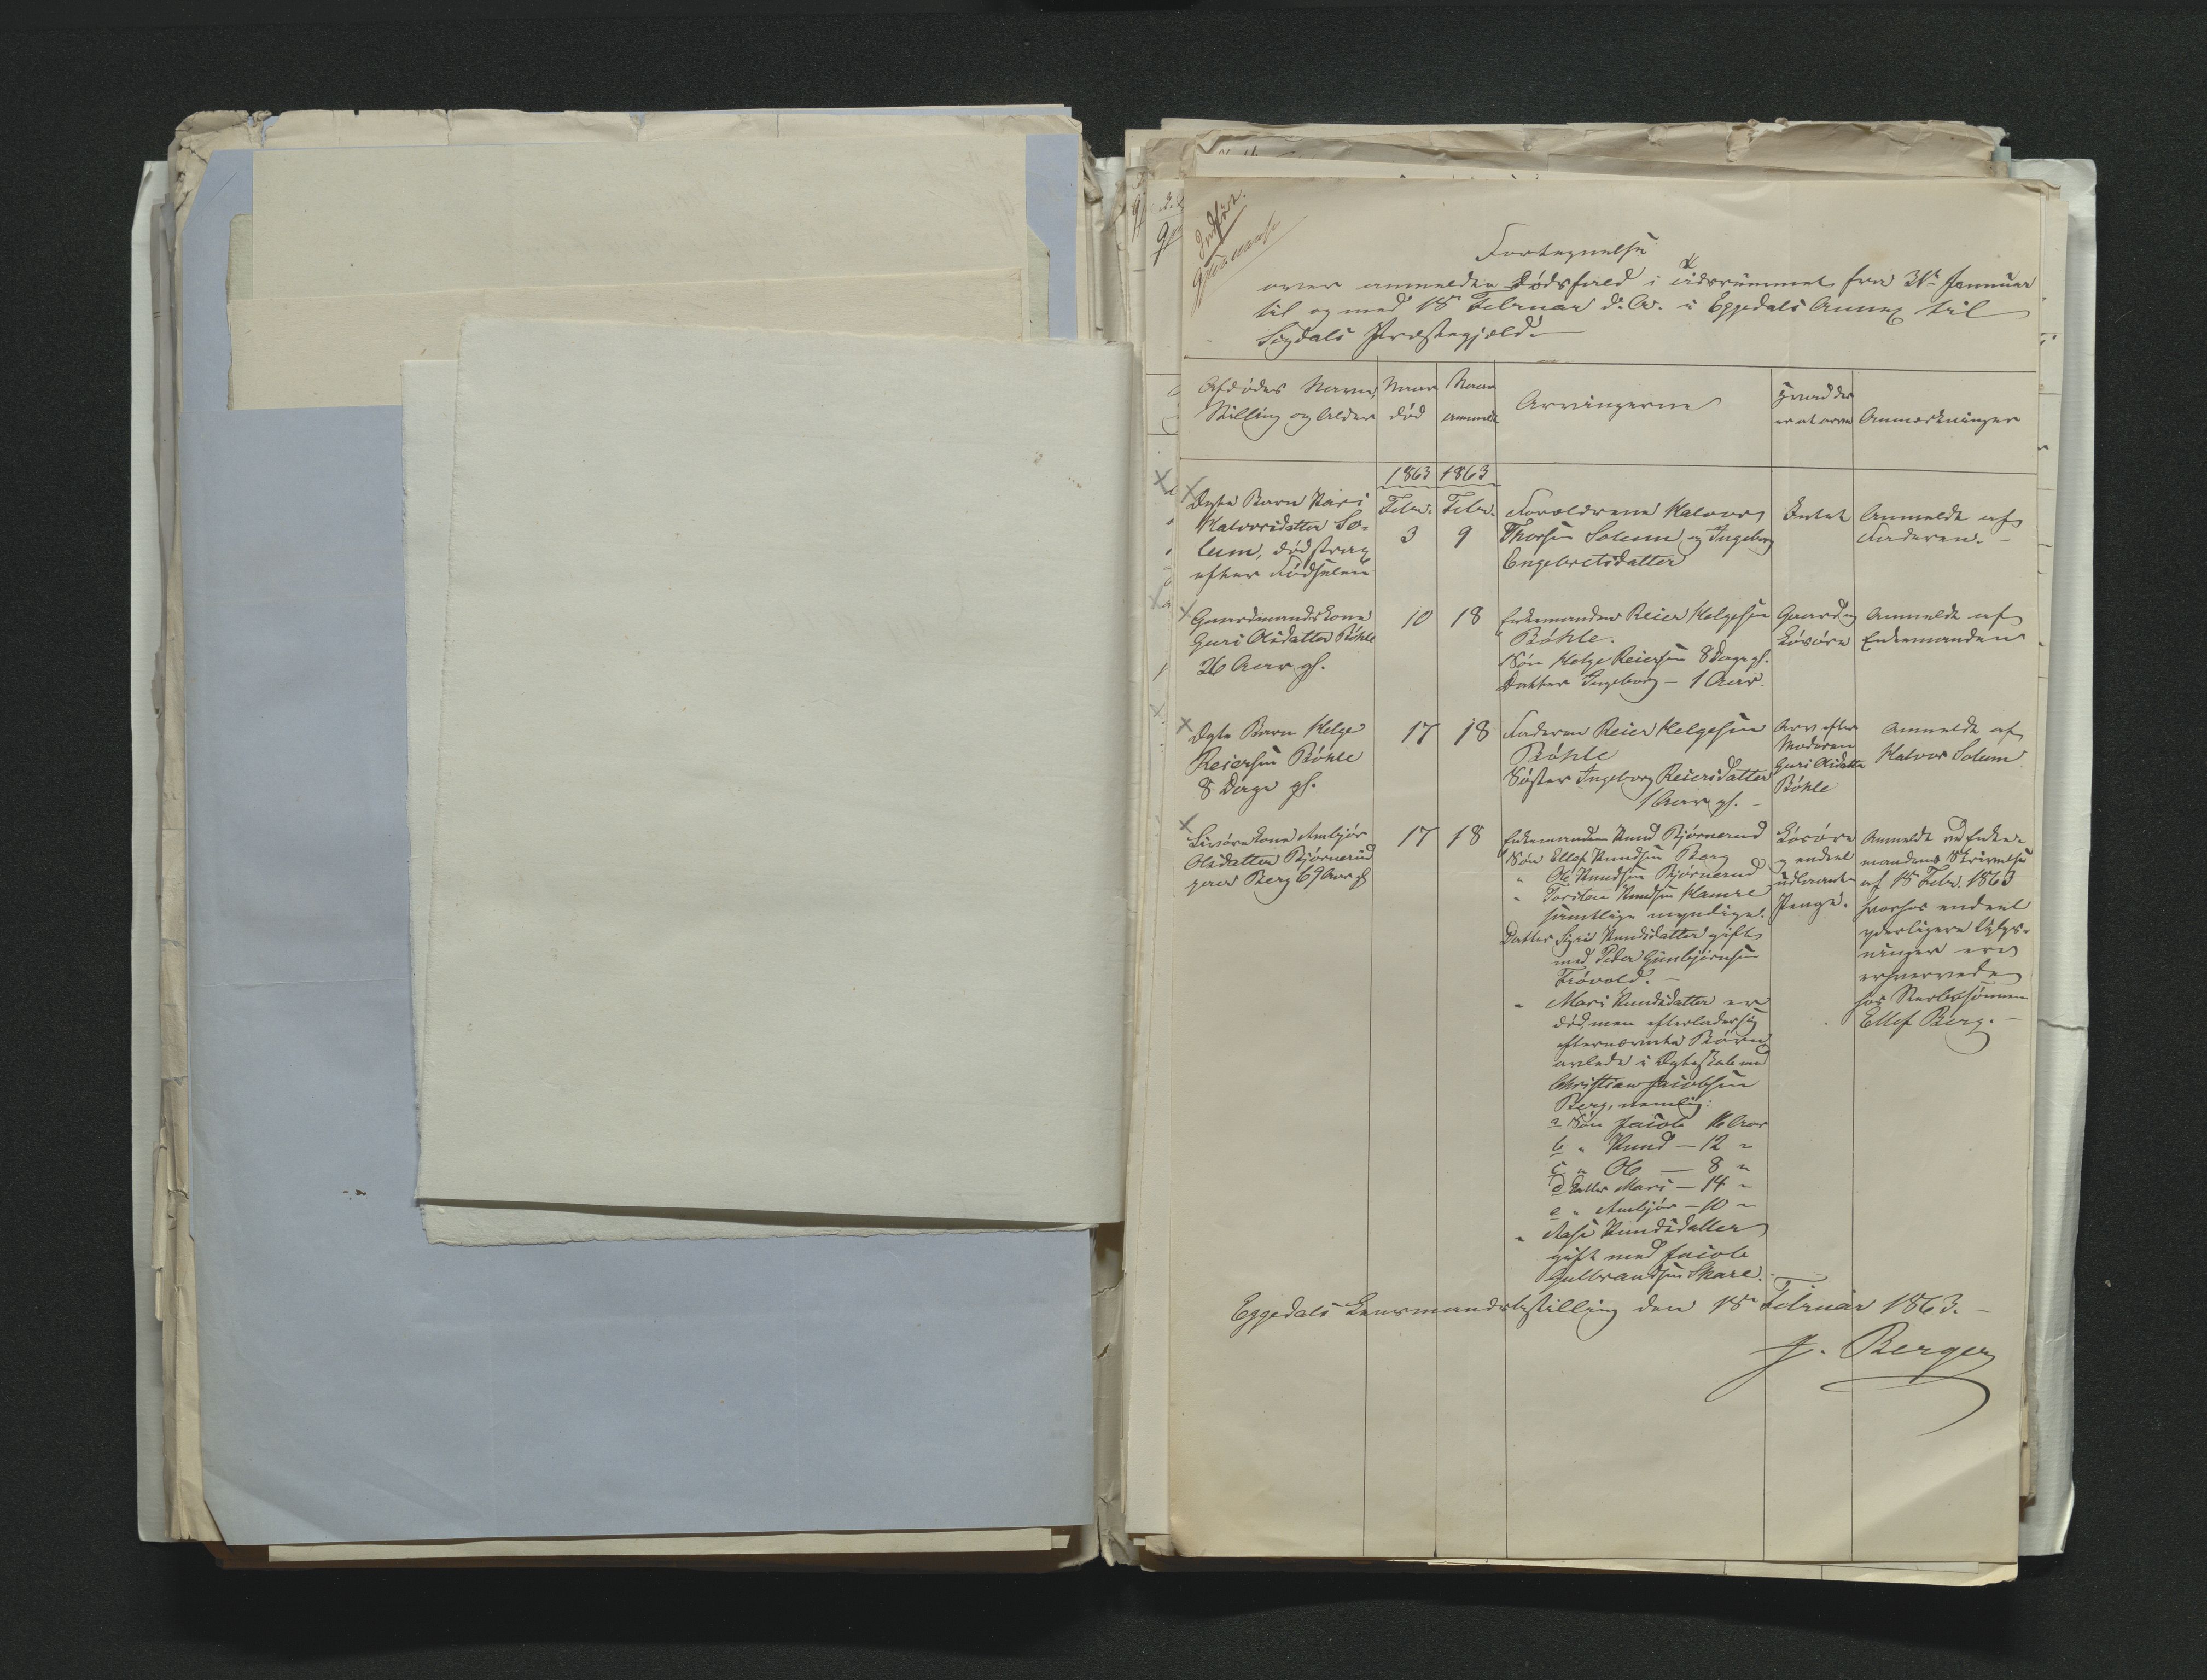 Indført.
Fortegnelse
over anmeldte Dødsfald i Tidsrummet fra 31te Januar
til og med 18de Februar d. A. i Eggedals Annex til
Sigdals Præstegjæld.
Afdødes Navn, Stilling og Alder
Naar død
Naar anmeldt
Arvingerne
Hvad der er at arve
Anmærkninger
1863 1863
Febr. Febr.
Ægte Barn Kari
Halvorsdatter So-
lum, død strax
efter Fødselen
3
9
Forældrene Halvor
Thorsen Solum og Ingeborg
Engebretsdatter
Intet
Anmeldt af
Faderen.
Gaardmandskone
Guri Olsdatter Bøhle
26 Aar gl.
10
18
Enkemanden Reier Helgesen
Bøhle.
Søn Helge Reiersen 8 Dage gl.
Datter Ingeborg - 1 Aar.
Gaard og
Løsøre
Anmeldt af
Enkemanden
Ægte Barn Helge
Reiersen Bøhle
8 Dage gl.
17
18
Faderen Reier Helgesen
Bøhle
Søster Ingeborg Reiersdatter
1 Aar gl.
Arv efter
Moderen
Guri Olsdatter
Bøhle
Anmeldt af
Halvor Solum
Livørekone Ambjør
Olsdatter Bjørnerud
paa Berg 69 Aar gl.
17
18
Enkemanden Knud Bjørnerud
Søn Ellef Knudsen Berg
" Ole Knudsen Bjørnerud
" Torsten Knudsen Hamre
samtlige myndige.
Datter Sigri Knudsdatter gift
med Peder Gunbjørnsen
Frøvold.
" Mari Knudsdatter er
død, men efterlader sig
efternævnte Børn
avlede i Ægteskab med
Christian Jacobsen
Berg, nemlig:
a Søn Jacob 16 Aar
b " Knud - 12 "
c " Ole - 8 "
d Datter Mari - 14 "
e " Ambjør - 10 "
" Aase Knudsdatter
gift med Jacob
Gulbrandsen Skare.
Løsøre
og endeel
udlaante
Penge.
Anmeldt ved Enke-
mandens Skrivelse
af 18 Febr. 1863
hvorhos endeel
yderligere Oplys-
ninger ere
erhvervede
hos Sterbosønnen
Ellef Berg.
Eggedals Lensmandsbestilling den 18de Februar 1863.
J. Berger